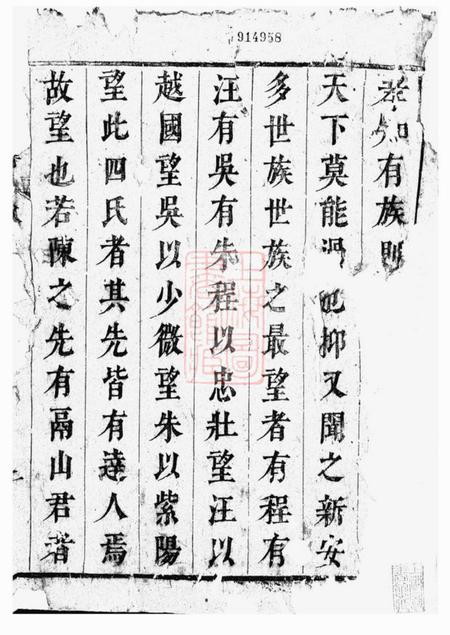 914958
知有族則
天下莫能也抑又聞之新安
多世族世族之最望者有程有
汪有吳有朱程以忠壯望汪以
越國望吳以少微望朱以紫陽
望此四氏者其先皆有達人焉
故望也若陳之先有鬲山君者